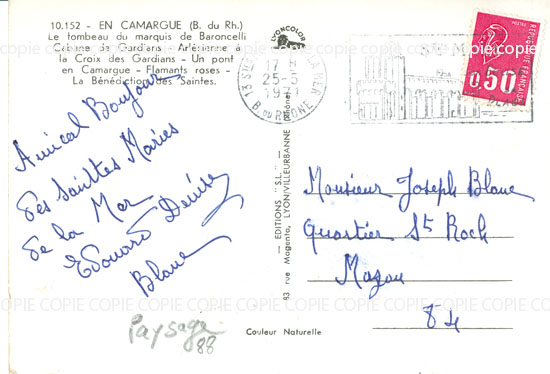 10.152 - EN CAMARGUE (B. du Rh.)
Le tombeau du marquis de Baroncelli
Cabane de Gardians - Arlésienne à
la Croix des Gardians - Un pont
en Camargue - Flamants roses -
La Bénédiction des Saintes.
Amical Bonjour
des Saintes Maries
de la Mer
Edouard Denise
Blanc
Paysage
88
LYONCOLOR
17 H
25-5
B. DU RHONE
REPUBLIQUE FRANÇAISE
0,50
EDITIONS "S.L."
83 rue Magenta, LYON/VILLEURBANNE (Rhône)
Monsieur Joseph Blanc
Quartier St Roch
Mazan
84
Couleur Naturelle
COPIE COPIE COPIE COPIE COPIE COPIE COPIE COPIE COPIE